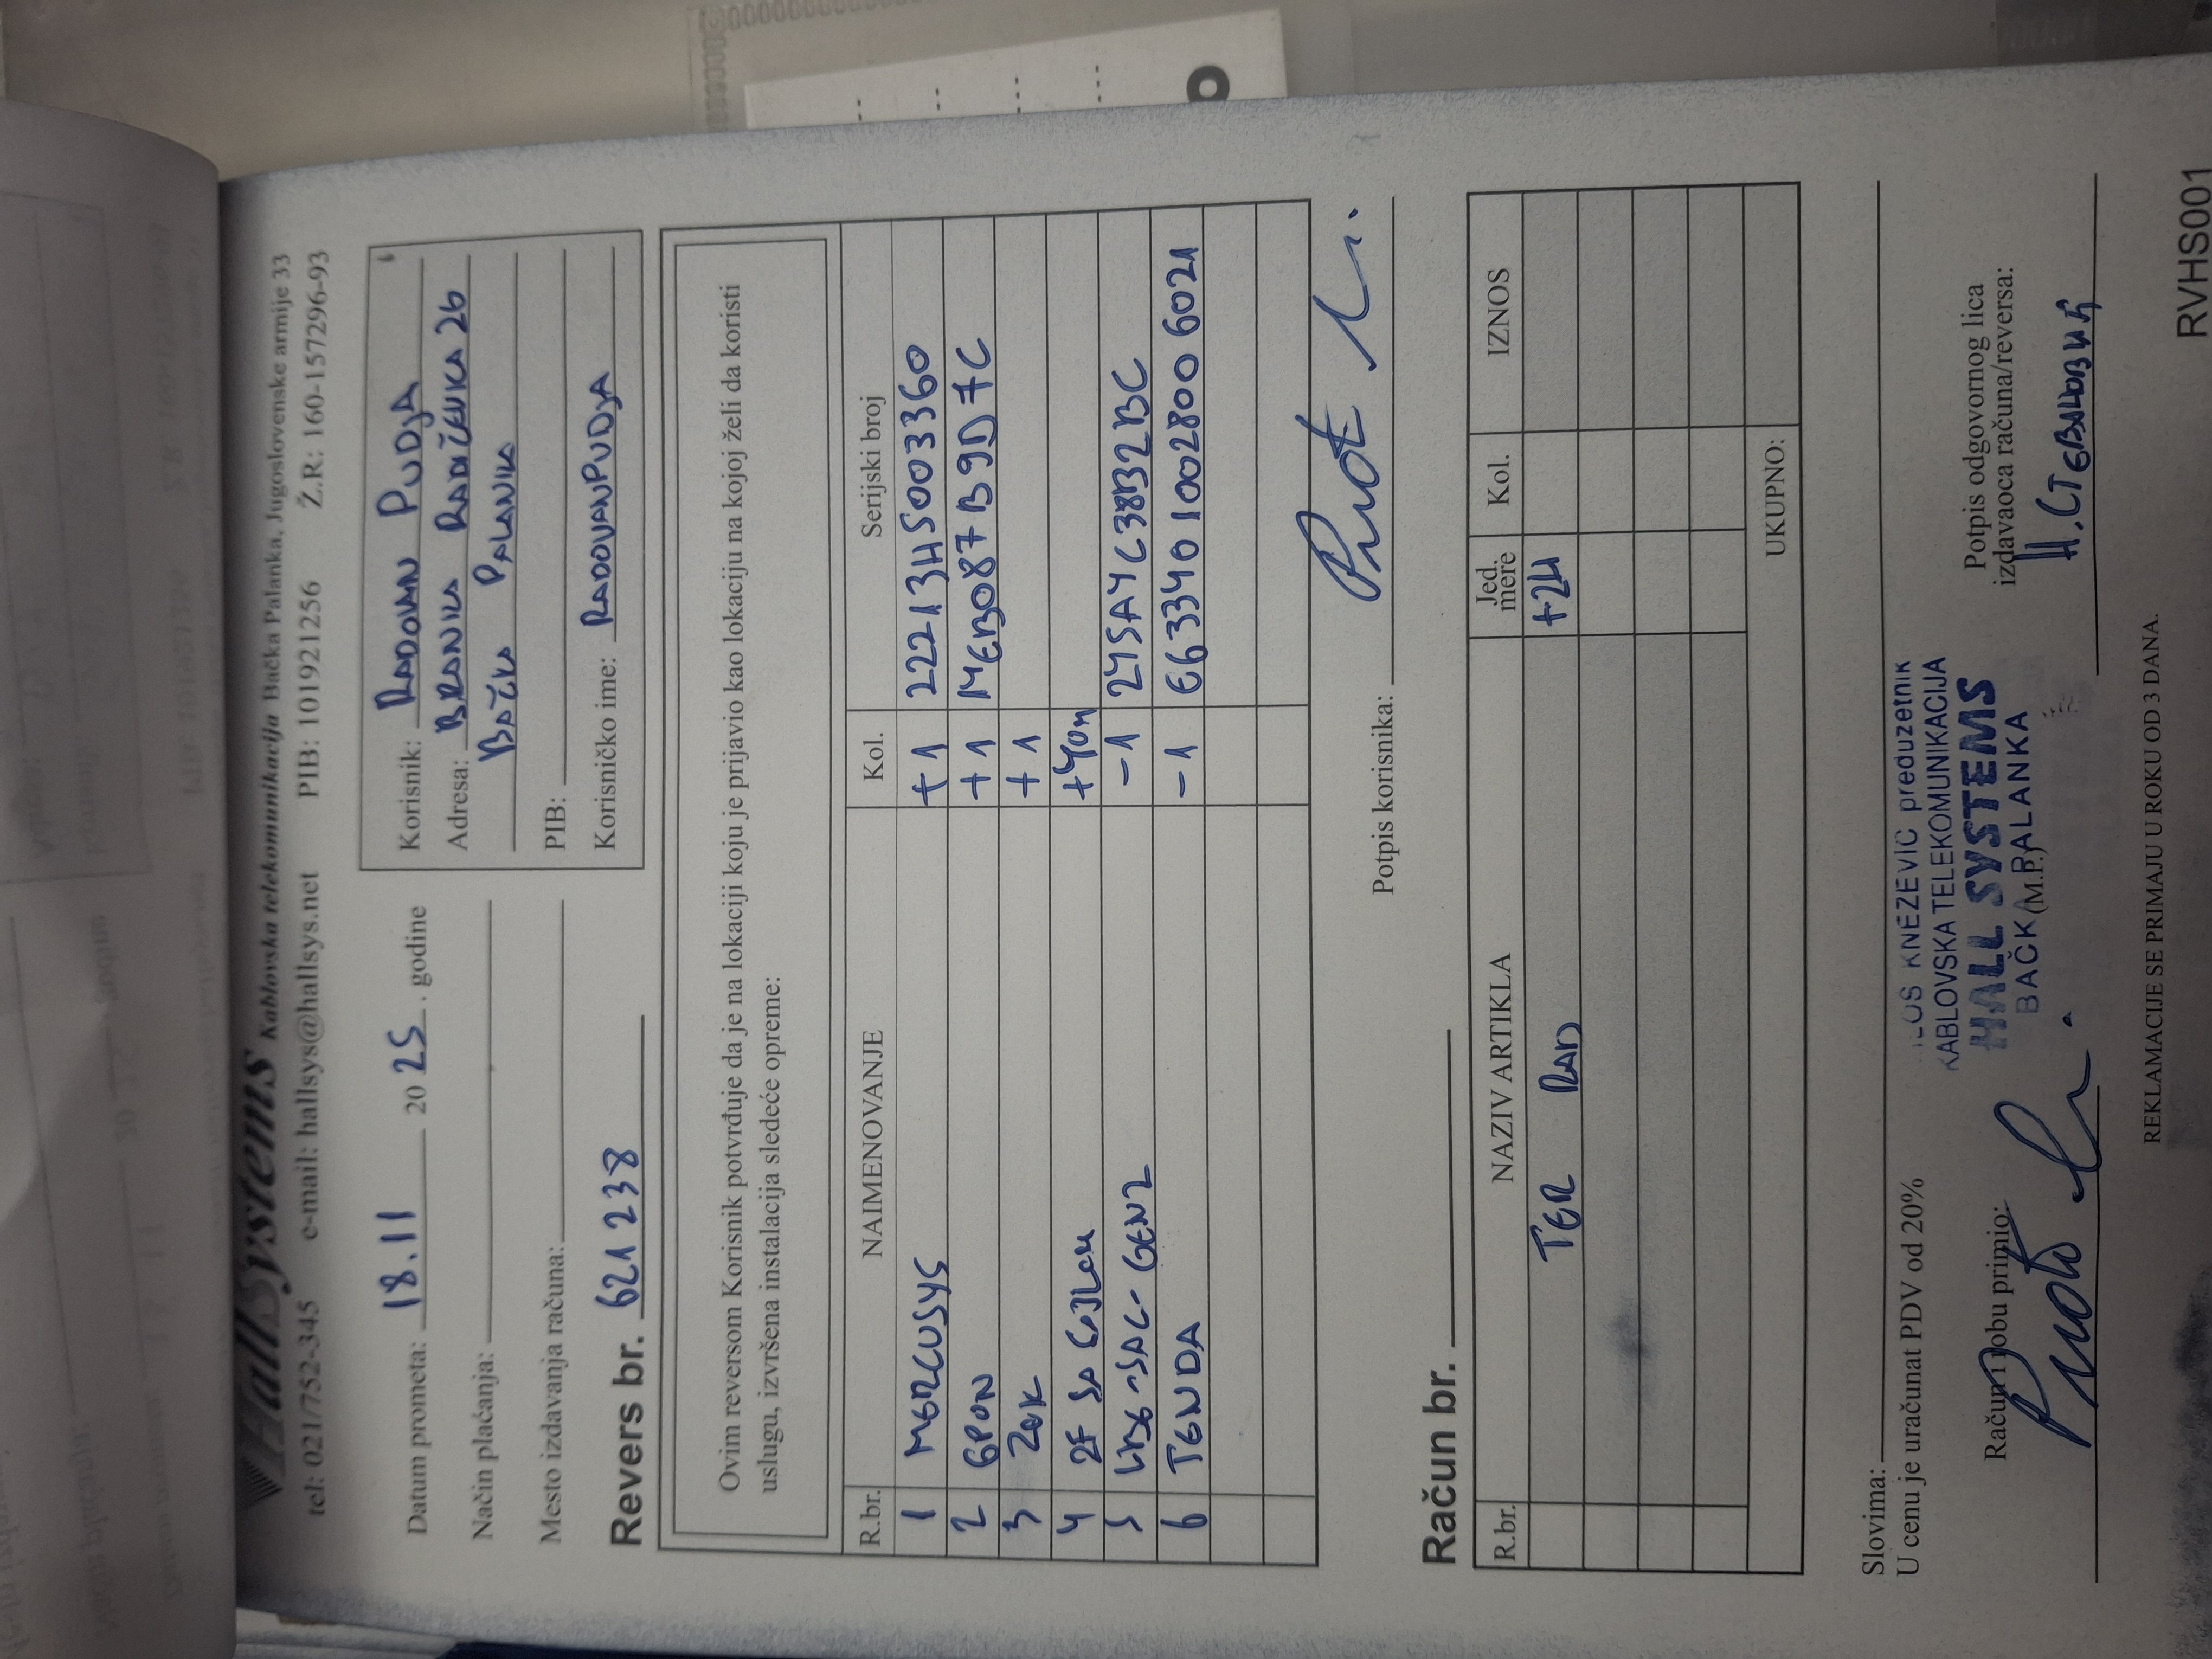 HallSystems Kablovska telekomunikacija Bačka Palanka, Jugoslovenske armije 33
tel: 021/752-345 e-mail: hallsys@hallsys.net PIB: 101921256 Ž.R: 160-157296-93
Datum prometa: 18.11 2025. godine
Način plaćanja:
Mesto izdavanja računa:
Revers br. 621238
Korisnik: RADOVAN PUDJA
Adresa: BRANKA RADIČEVIĆA 26
BAČKA PALANKA
PIB:
Korisničko ime: RADOVANPUDJA
Ovim reversom Korisnik potvrđuje da je na lokaciji koju je prijavio kao lokaciju na kojoj želi da koristi
uslugu, izvršena instalacija sledeće opreme:
R.br. NAIMENOVANJE Kol. Serijski broj
1 MERCUSYS +1 22213H5003360
2 GPON +1 MEB087B9D7C
3 ZOK +1
4 2F SA SAJLOM +40m
5 LBE-5AC-GEN2 -1 245A4C38B2BC
6 TENDA -1 E6334010028006021
Potpis korisnika:
Račun br.
R.br. NAZIV ARTIKLA Jed. mere Kol. IZNOS
TER RAD +2H
UKUPNO:
Slovima:
U cenu je uračunat PDV od 20%
KNEZEVIĆ preduzetnik
KABLOVSKA TELEKOMUNIKACIJA
HALL SYSTEMS
BAČKA PALANKA
(M.P.)
Račun i robu primio:
Potpis odgovornog lica
izdavaoca računa/reversa:
REKLAMACIJE SE PRIMAJU U ROKU OD 3 DANA.
RVHS001